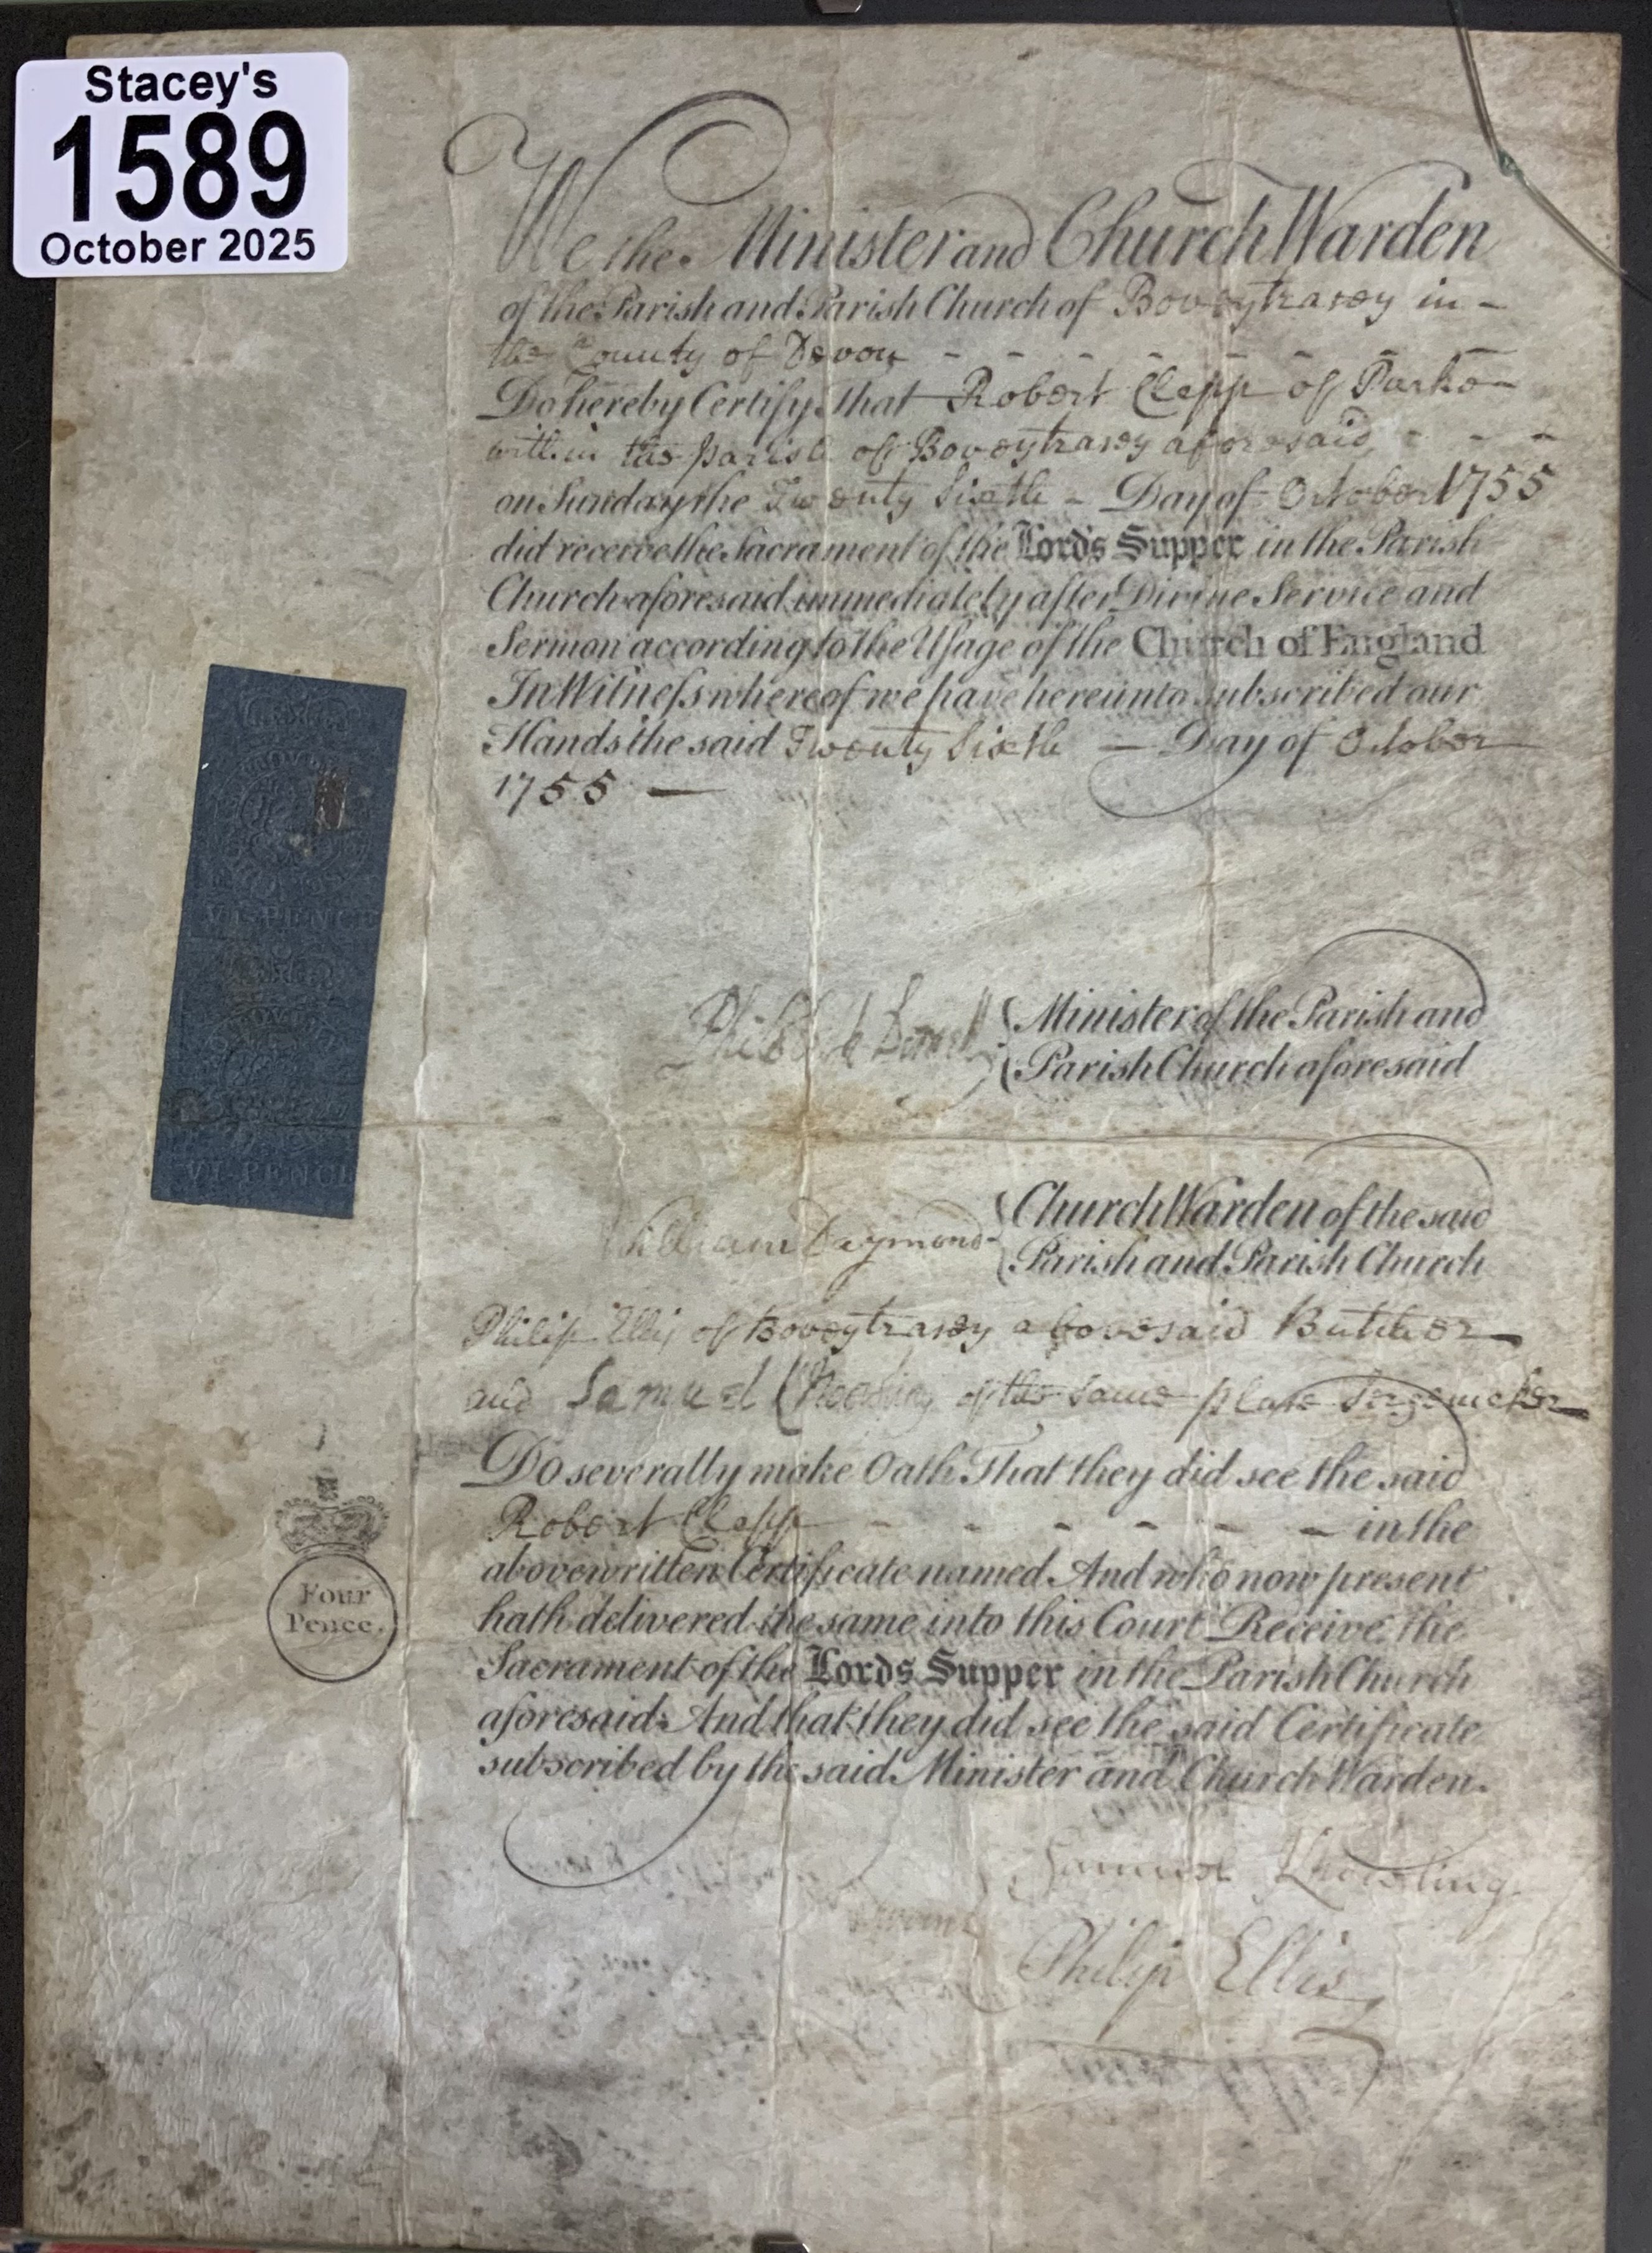 Stacey's
1589
October 2025
We the Minister and Church Warden
of the Parish and Parish Church of Boveytrasey in -
the County of Devon - - - - - - - -
Do hereby Certify that Robert Clapp of Parke -
within the parish of Boveytrasey aforesaid - - -
on Sunday the Twenty Sixth - Day of October 1755
did receive the Sacrament of the Lords Supper in the Parish
Church aforesaid immediately after Divine Service and
Sermon according to the Usage of the Church of England
In Witness whereof we have hereunto subscribed our
Hands the said Twenty Sixth — Day of October
1755 —
VI PENCE
Minister of the Parish and
Parish Church aforesaid
William Daymond
Church Warden of the said
Parish and Parish Church
VI PENCE
Philip Ellis of Boveytrasey abovesaid Butcher
and Samuel of the same place Sergemaker
Do severally make Oath That they did see the said
Robert Clapp - - - - - - - in the
abovewritten Certificate named And who now present
hath delivered the same into this Court Receive the
Four
Pence.
Sacrament of the Lords Supper in the Parish Church
aforesaid And that they did see the said Certificate
subscribed by the said Minister and Church Warden.
Samuel Knowling
Philip Ellis